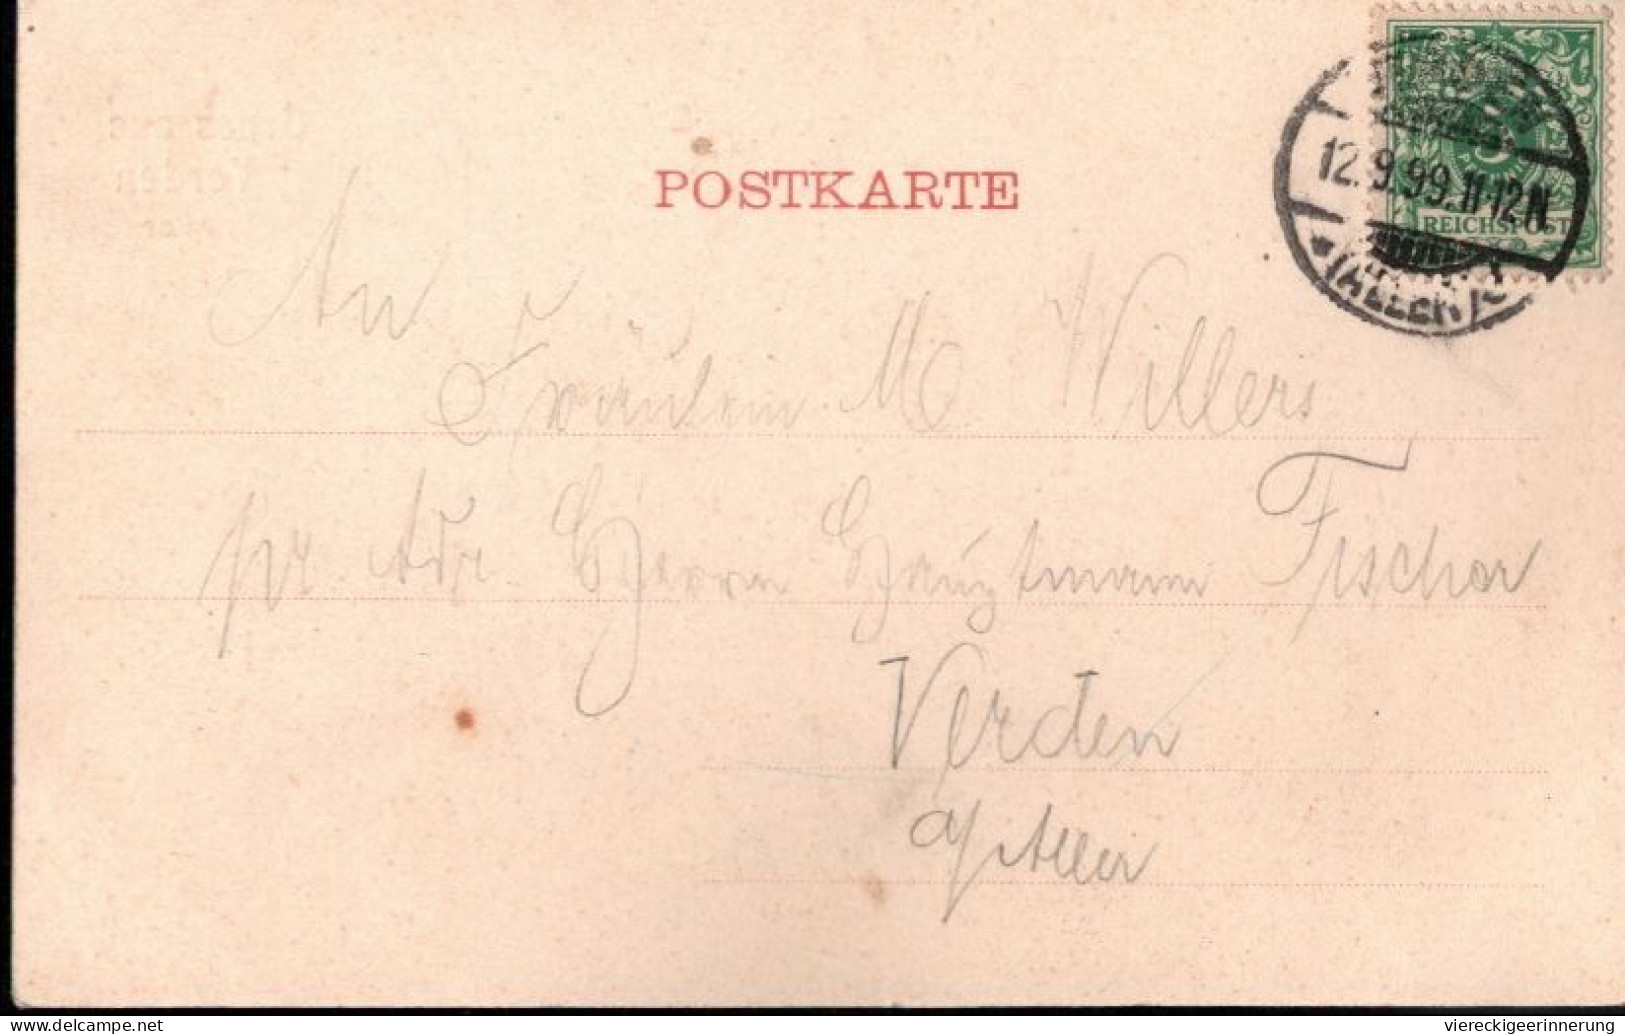 POSTKARTE
VERDEN
12.9.99.11-12N
(ALLER)
5
REICHSPOST
An
Fräulein M. Willers
pr. Adr. Herrn Hauptmann Fischer
Verden
a/Aller
delcampe.net
viereckigeerinnerung